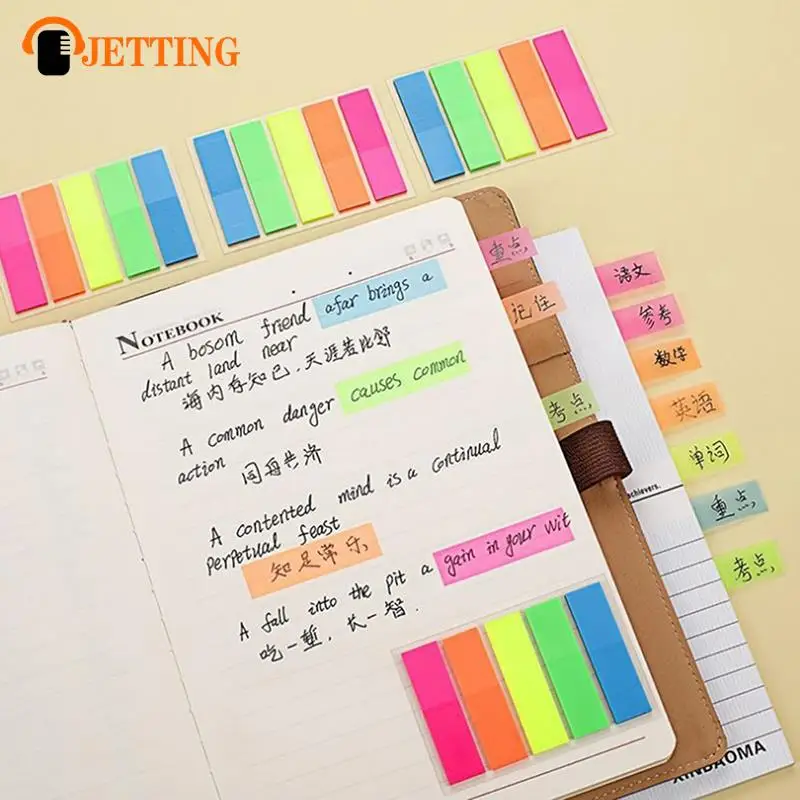 JETTING
NOTEBOOK
A bosom friend afar brings a
distant land near
海内存知己,天涯若比邻
A common danger causes common
action 同舟共济
A contented mind is a continual
perpetual feast
知足常乐
A fall into the pit a gain in your wit
吃一堑,长一智.
重点
记住
考点
语文
参考
数学
英语
单词
重点
考点
achievers.
XINBAOMA